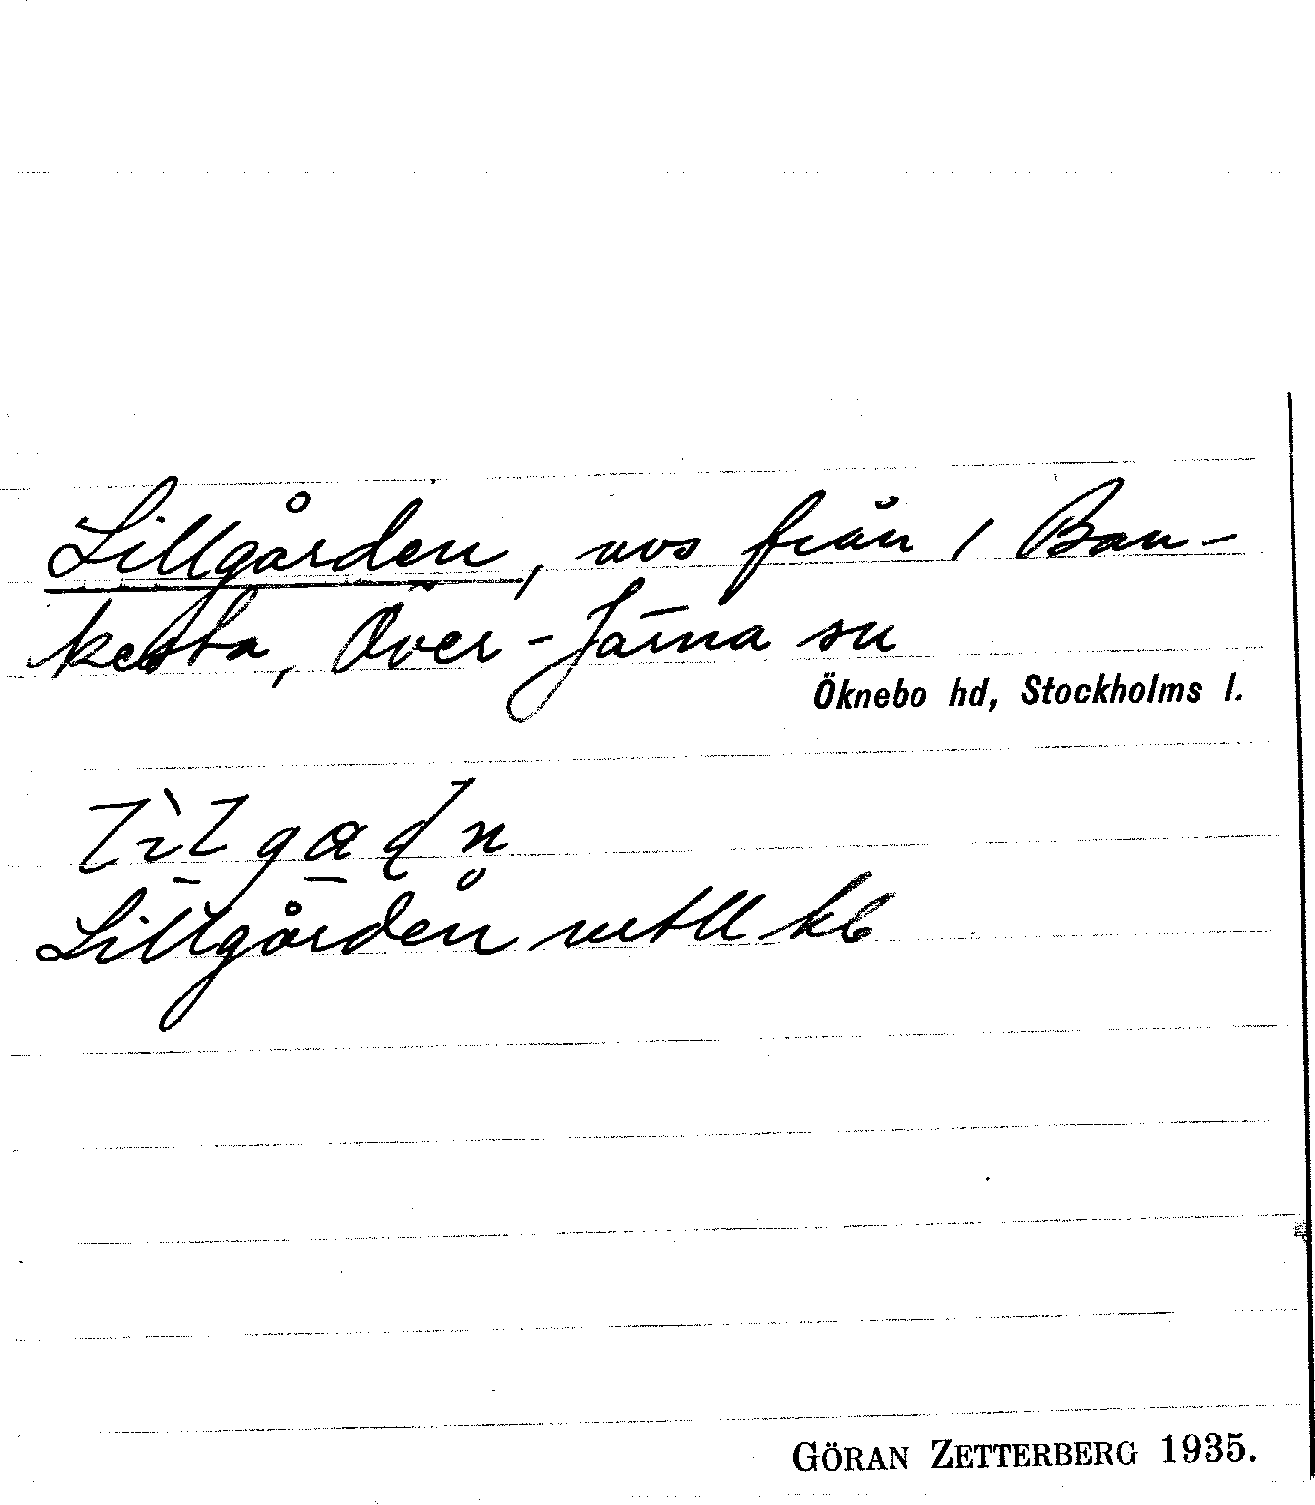 Lillgården, avs från 1 Ban-
kesta, Över-Järna sn
Öknebo hd, Stockholms l.
Lillgården mtll kb
GÖRAN ZETTERBERG 1935.